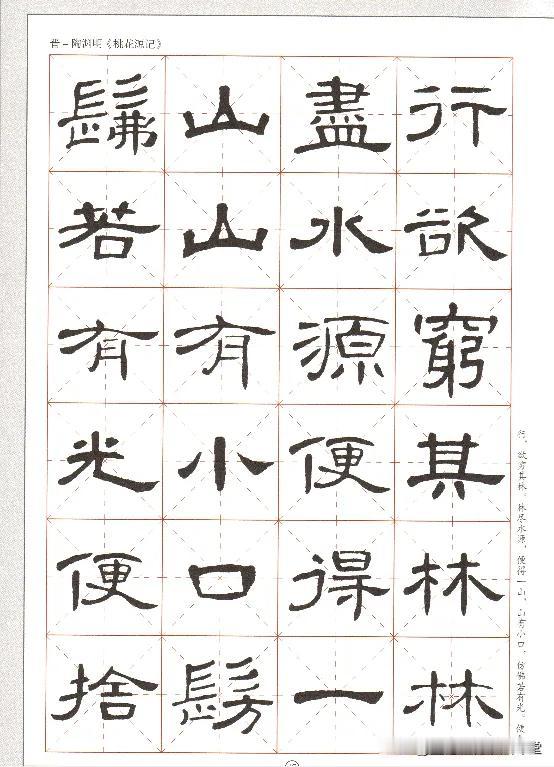 晋－陶渊明《桃花源记》
行欲窮其林林
盡水源便得一
山山有小口髣
髴若有光便捨
行，欲穷其林。林尽水源，便得一山，山有小口，仿佛若有光。便
堂